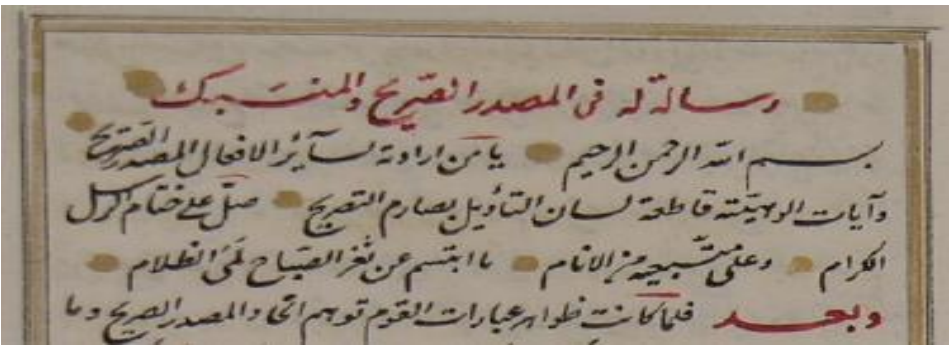 رسالة له في المصدر الصريح والمنسبك
بسم الله الرحمن الرحيم يا من ارادته لسآئر الافعال المصدر الصريح
وآيات الوهيته قاطعة لسان التأويل بصارم التصريح صل على ختام الرسل
الكرام وعلى متبعيه من الانام ما ابتسم عن ثغر الصباح لمى الظلام
وبعد فلما كانت ظواهر عبارات القوم توهم اتحاد المصدر الصريح وما